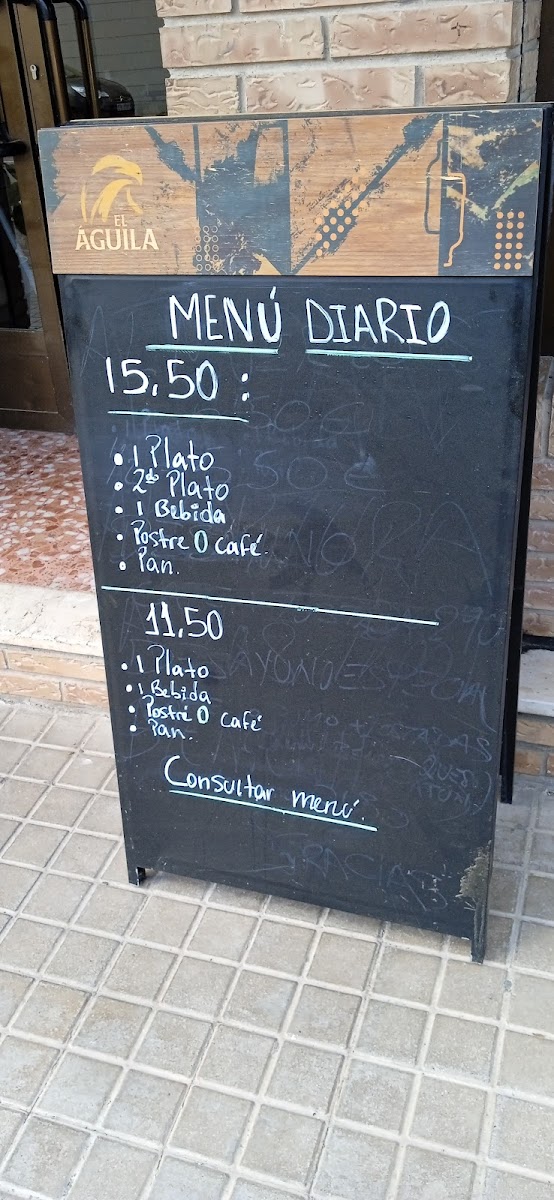 EL
ÁGUILA
MENÚ DIARIO
15,50 :
• 1 Plato
• 2do Plato
• 1 Bebida
• Postre O café.
• Pan.
11,50
• 1 Plato
• 1 Bebida
• Postre O café
• Pan.
Consultar menú.
GRACIAS